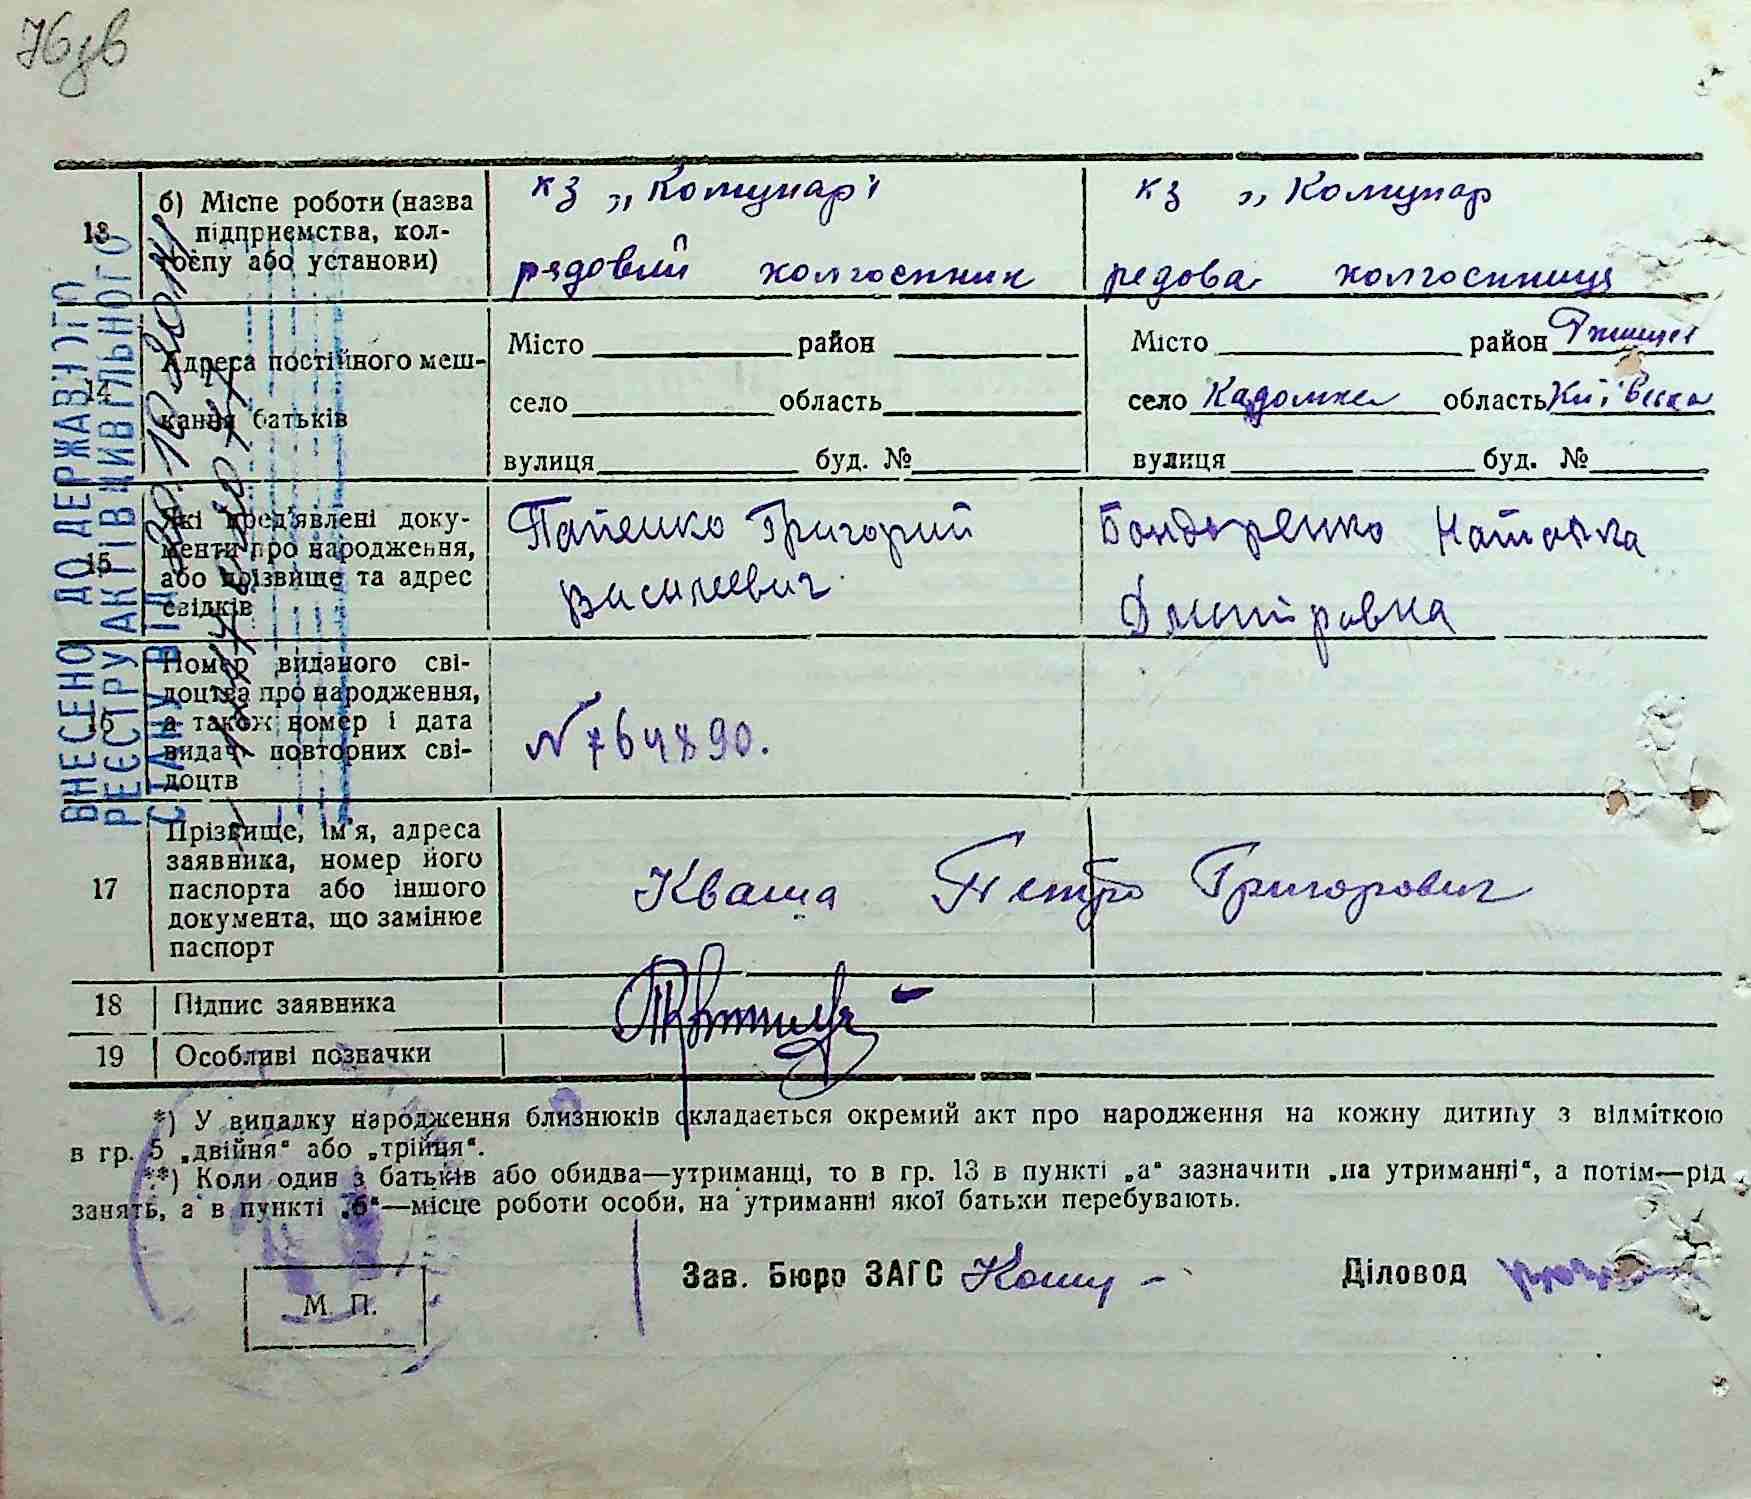 76зв
13
б) Місце роботи (назва підприємства, колгоспу або установи)
кз „Комунар"
рядовий колгоспник
кз „Комунар
редова колгоспниця
14
Адреса постійного мешкання батьків
Місто район
село область
вулиця буд. №
Місто район
село Кадомка область Київська
вулиця буд. №
15
Які пред'явлені документи про народження, або прізвище та адрес свідків
Григорий
Василевич
Бондаренко Наталка
Дмитровна
16
Номер виданого свідоцтва про народження, а також номер і дата видачі повторних свідоцтв
N 764890.
17
Прізвище, ім'я, адреса заявника, номер його паспорта або іншого документа, що замінює паспорт
Кваша Петро Григорович
18
Підпис заявника
19
Особливі позначки
*) У випадку народження близнюків складається окремий акт про народження на кожну дитину з відміткою
в гр. 5 „двійня" або „трійня".
**) Коли один з батьків або обидва—утриманці, то в гр. 13 в пункті „а" зазначити „на утриманні", а потім—рід
занять, а в пункті „б"—місце роботи особи, на утриманні якої батьки перебувають.
М. П.
Зав. Бюро ЗАГС
Діловод
ВНЕСЕНО ДО ДЕРЖАВНОГО
РЕЄСТРУ АКТІВ ЦИВІЛЬНОГО
СТАНУ ВІД